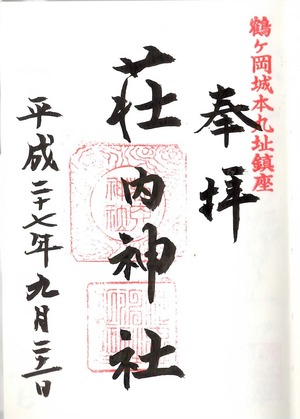 鶴ヶ岡城本丸址鎮座
奉拝
荘内神社
平成二十七年九月二十二日